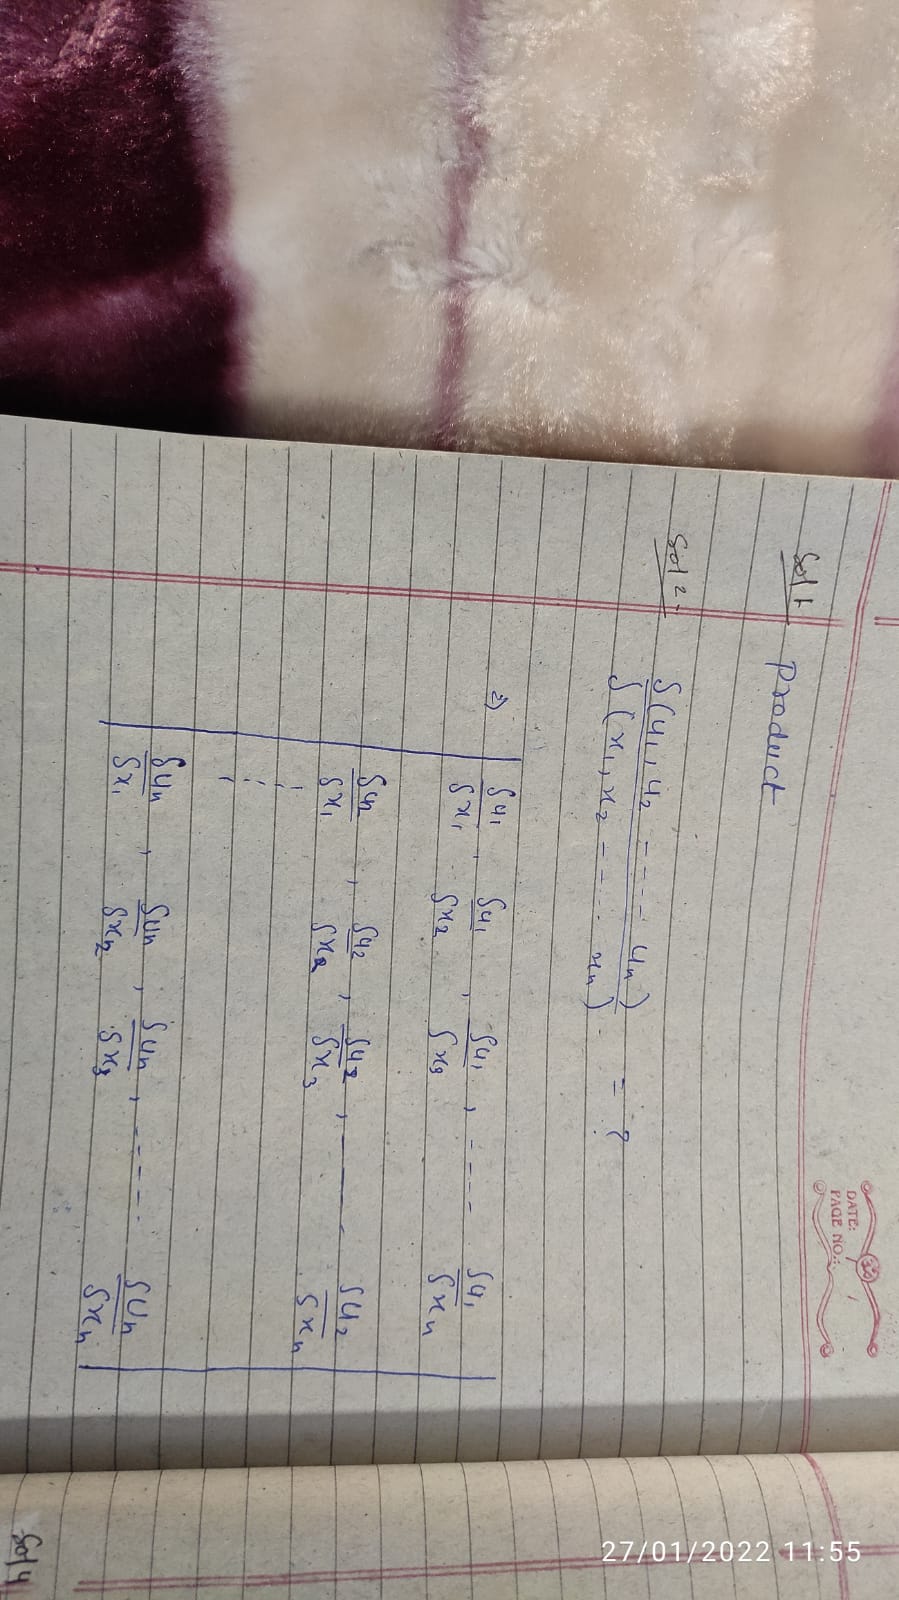 DATE:
PAGE NO.:
Sol 1
Product
Sol 2-
δ(u1, u2 ---- un) / δ(x1, x2 ---- xn) = ?
⇒ | δu1/δx1 , δu1/δx2 , δu1/δx3 , ---- δu1/δxn |
δu2/δx1 , δu2/δx2 , δu2/δx3 , ---- δu2/δxn
δun/δx1 , δun/δx2 , δun/δx3 , ----- δun/δxn
Sol 4
27/01/2022 11:55